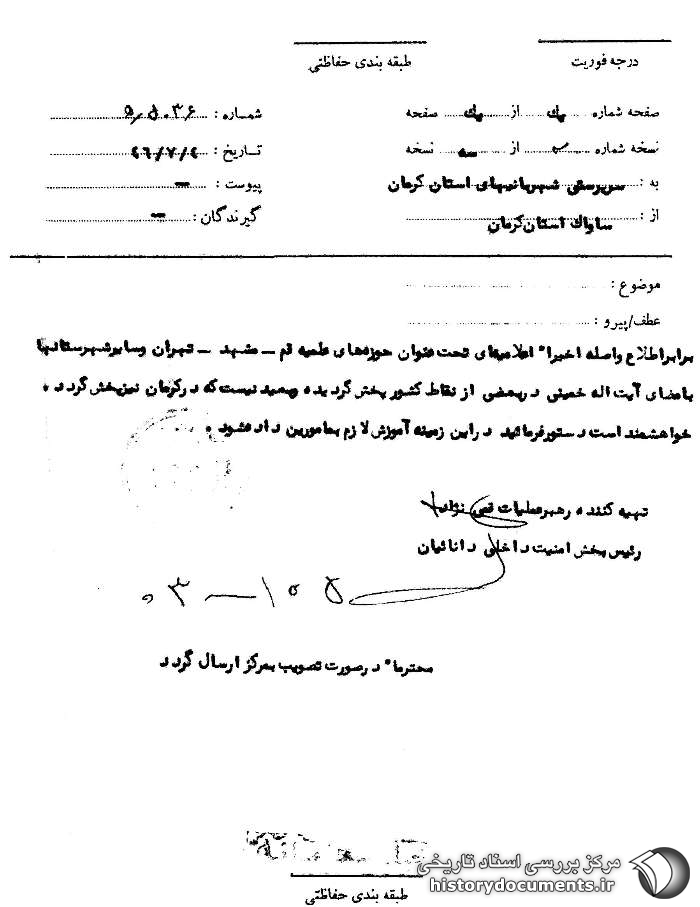 درجه فوریت
طبقه بندی حفاظتی
صفحه شماره یک از یک صفحه
شماره :
نسخه شماره از سه نسخه
تاریخ : ۴۶/۷/۴
به : سرپرستی شهربانیهای استان کرمان
پیوست : ــ
از : ساواک استان کرمان
گیرندگان : ــ
موضوع :
عطف/پیرو :
برابر اطلاع واصله اخیرا" اعلامیه‌ای تحت عنوان حوزه‌های علمیه قم ــ مشهد ــ تهران وسایر شهرستانها
بامضای آیت اله خمینی در بعضی از نقاط کشور پخش گردیده وبعید نیست که در کرمان نیز پخش گردد .
خواهشمند است دستور فرمائید در این زمینه آموزش لازم بمامورین داده شود .
تهیه کننده رهبر عملیات نژاد
رئیس بخش امنیت داخلی دانائیان
محترما" در صورت تصویب بمرکز ارسال گردد
طبقه بندی حفاظتی
مرکز بررسی اسناد تاریخی
historydocuments.ir